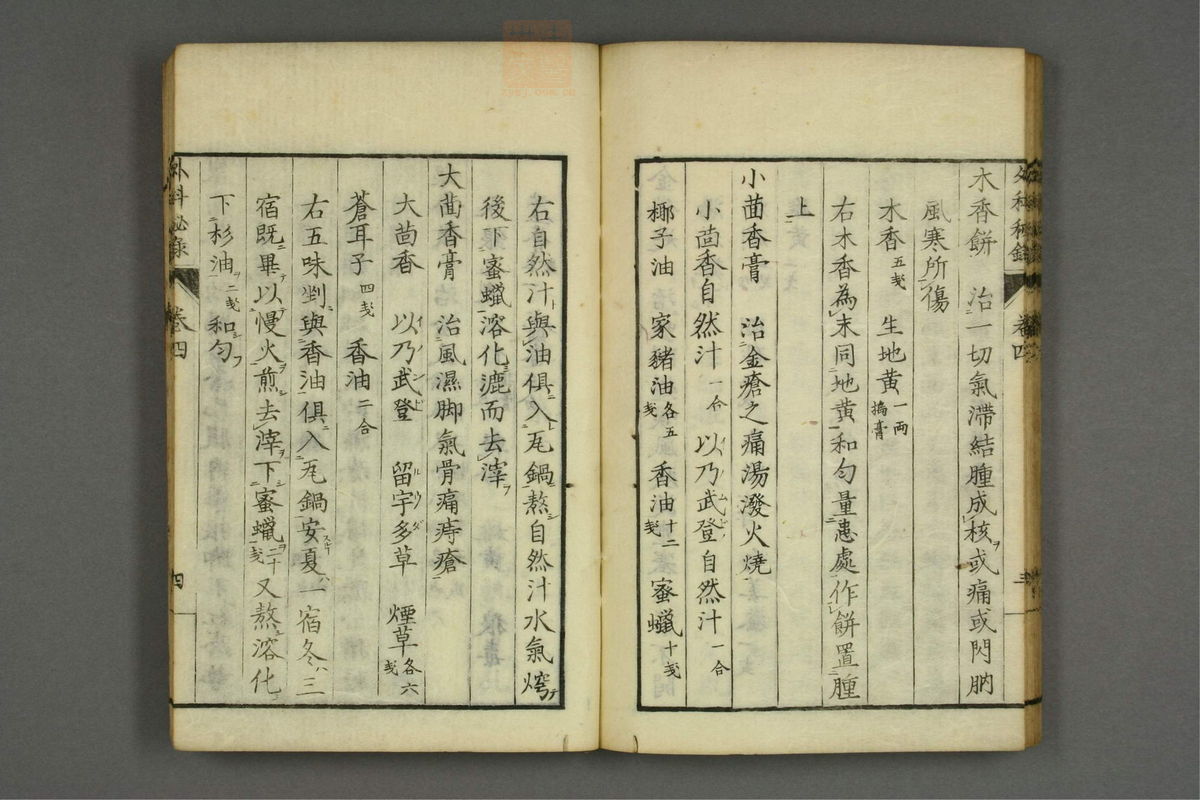 外科秘錄 卷四 三
木香餅 治一切氣滯結腫成核ヲ或痛或閃肭
風寒所傷
木香五戔 生地黃一兩搗膏
右木香為末同地黃和勻量患處作餅置腫
上
小茴香膏 治金瘡之痛湯潑火燒
小茴香自然汁一合 以乃武登自然汁一合
椰子油 家豬油各五戔 香油十二戔 蜜蠟十戔
右自然汁與油俱入瓦鍋熬自然汁水氣
後下蜜蠟溶化漉而去滓
大茴香膏 治風濕脚氣骨痛痔瘡
大茴香 以乃武登 留宇多草 煙草各六戔
蒼耳子四戔 香油二合
右五味剉與香油俱入瓦鍋安夏一宿冬三
宿既畢以慢火煎去滓下蜜蠟二十戔又熬溶化
下杉油二戔和勻
外科秘錄 卷四 四